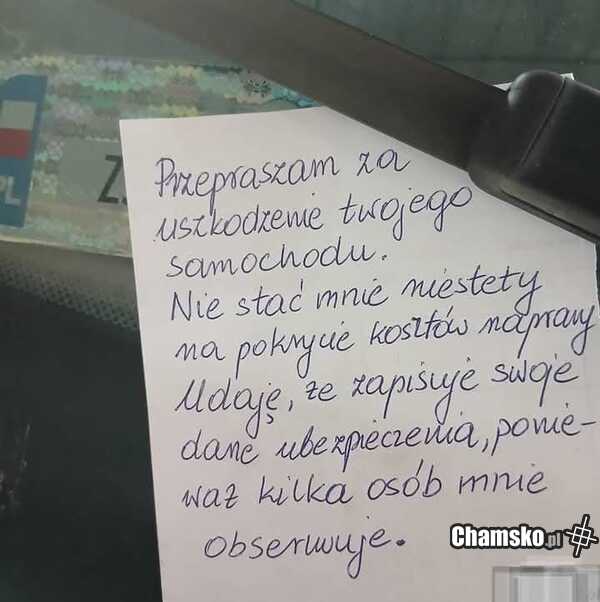 PL
Z
Przepraszam za
uszkodzenie twojego
samochodu.
Nie stać mnie niestety
na pokrycie kosztów naprawy
Udaję, że zapisuje swoje
dane ubezpieczenia, ponie-
waż kilka osób mnie
obserwuje.
Chamsko.pl